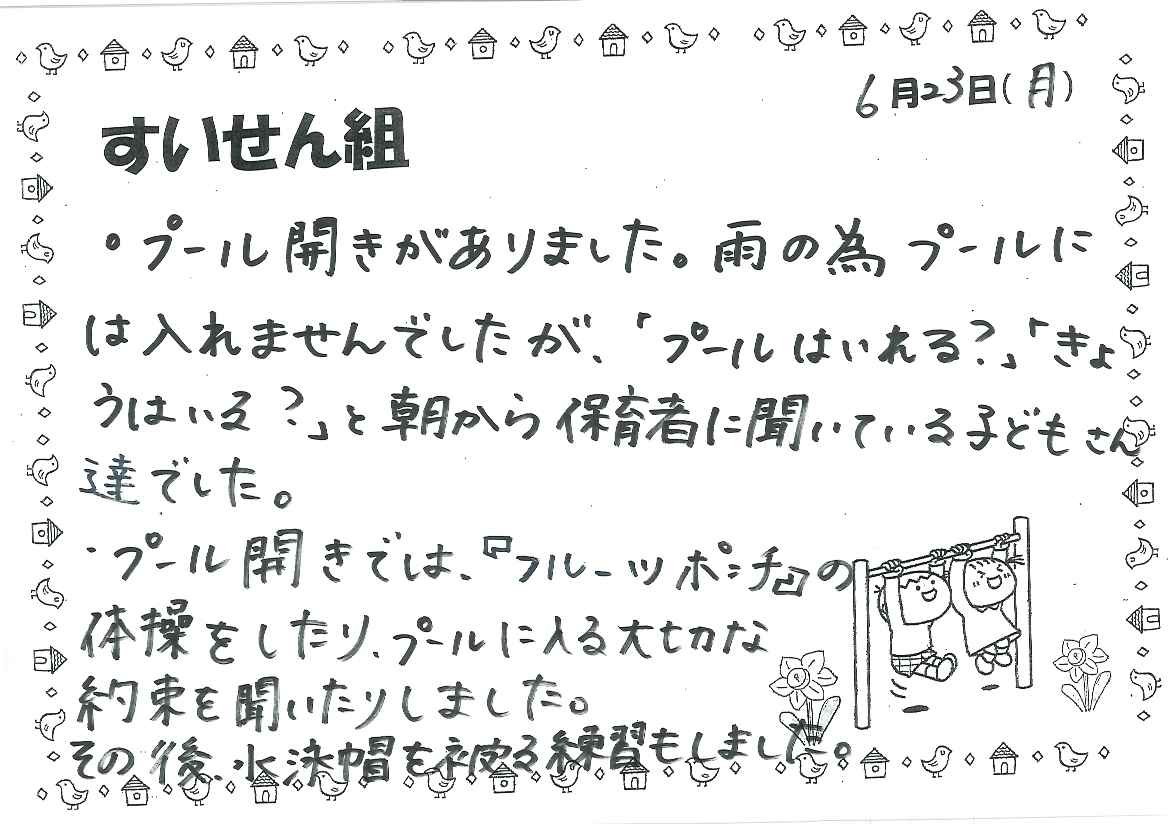 6月23日(月)
すいせん組
・プール開きがありました。雨の為プールに
は入れませんでしたが、「プールはいれる?」「きょ
うはいる?」と朝から保育者に聞いている子どもさん
達でした。
・プール開きでは、『フルーツポンチ』の
体操をしたり、プールに入る大切な
約束を聞いたりしました。
その後、水泳帽を被る練習もしました。